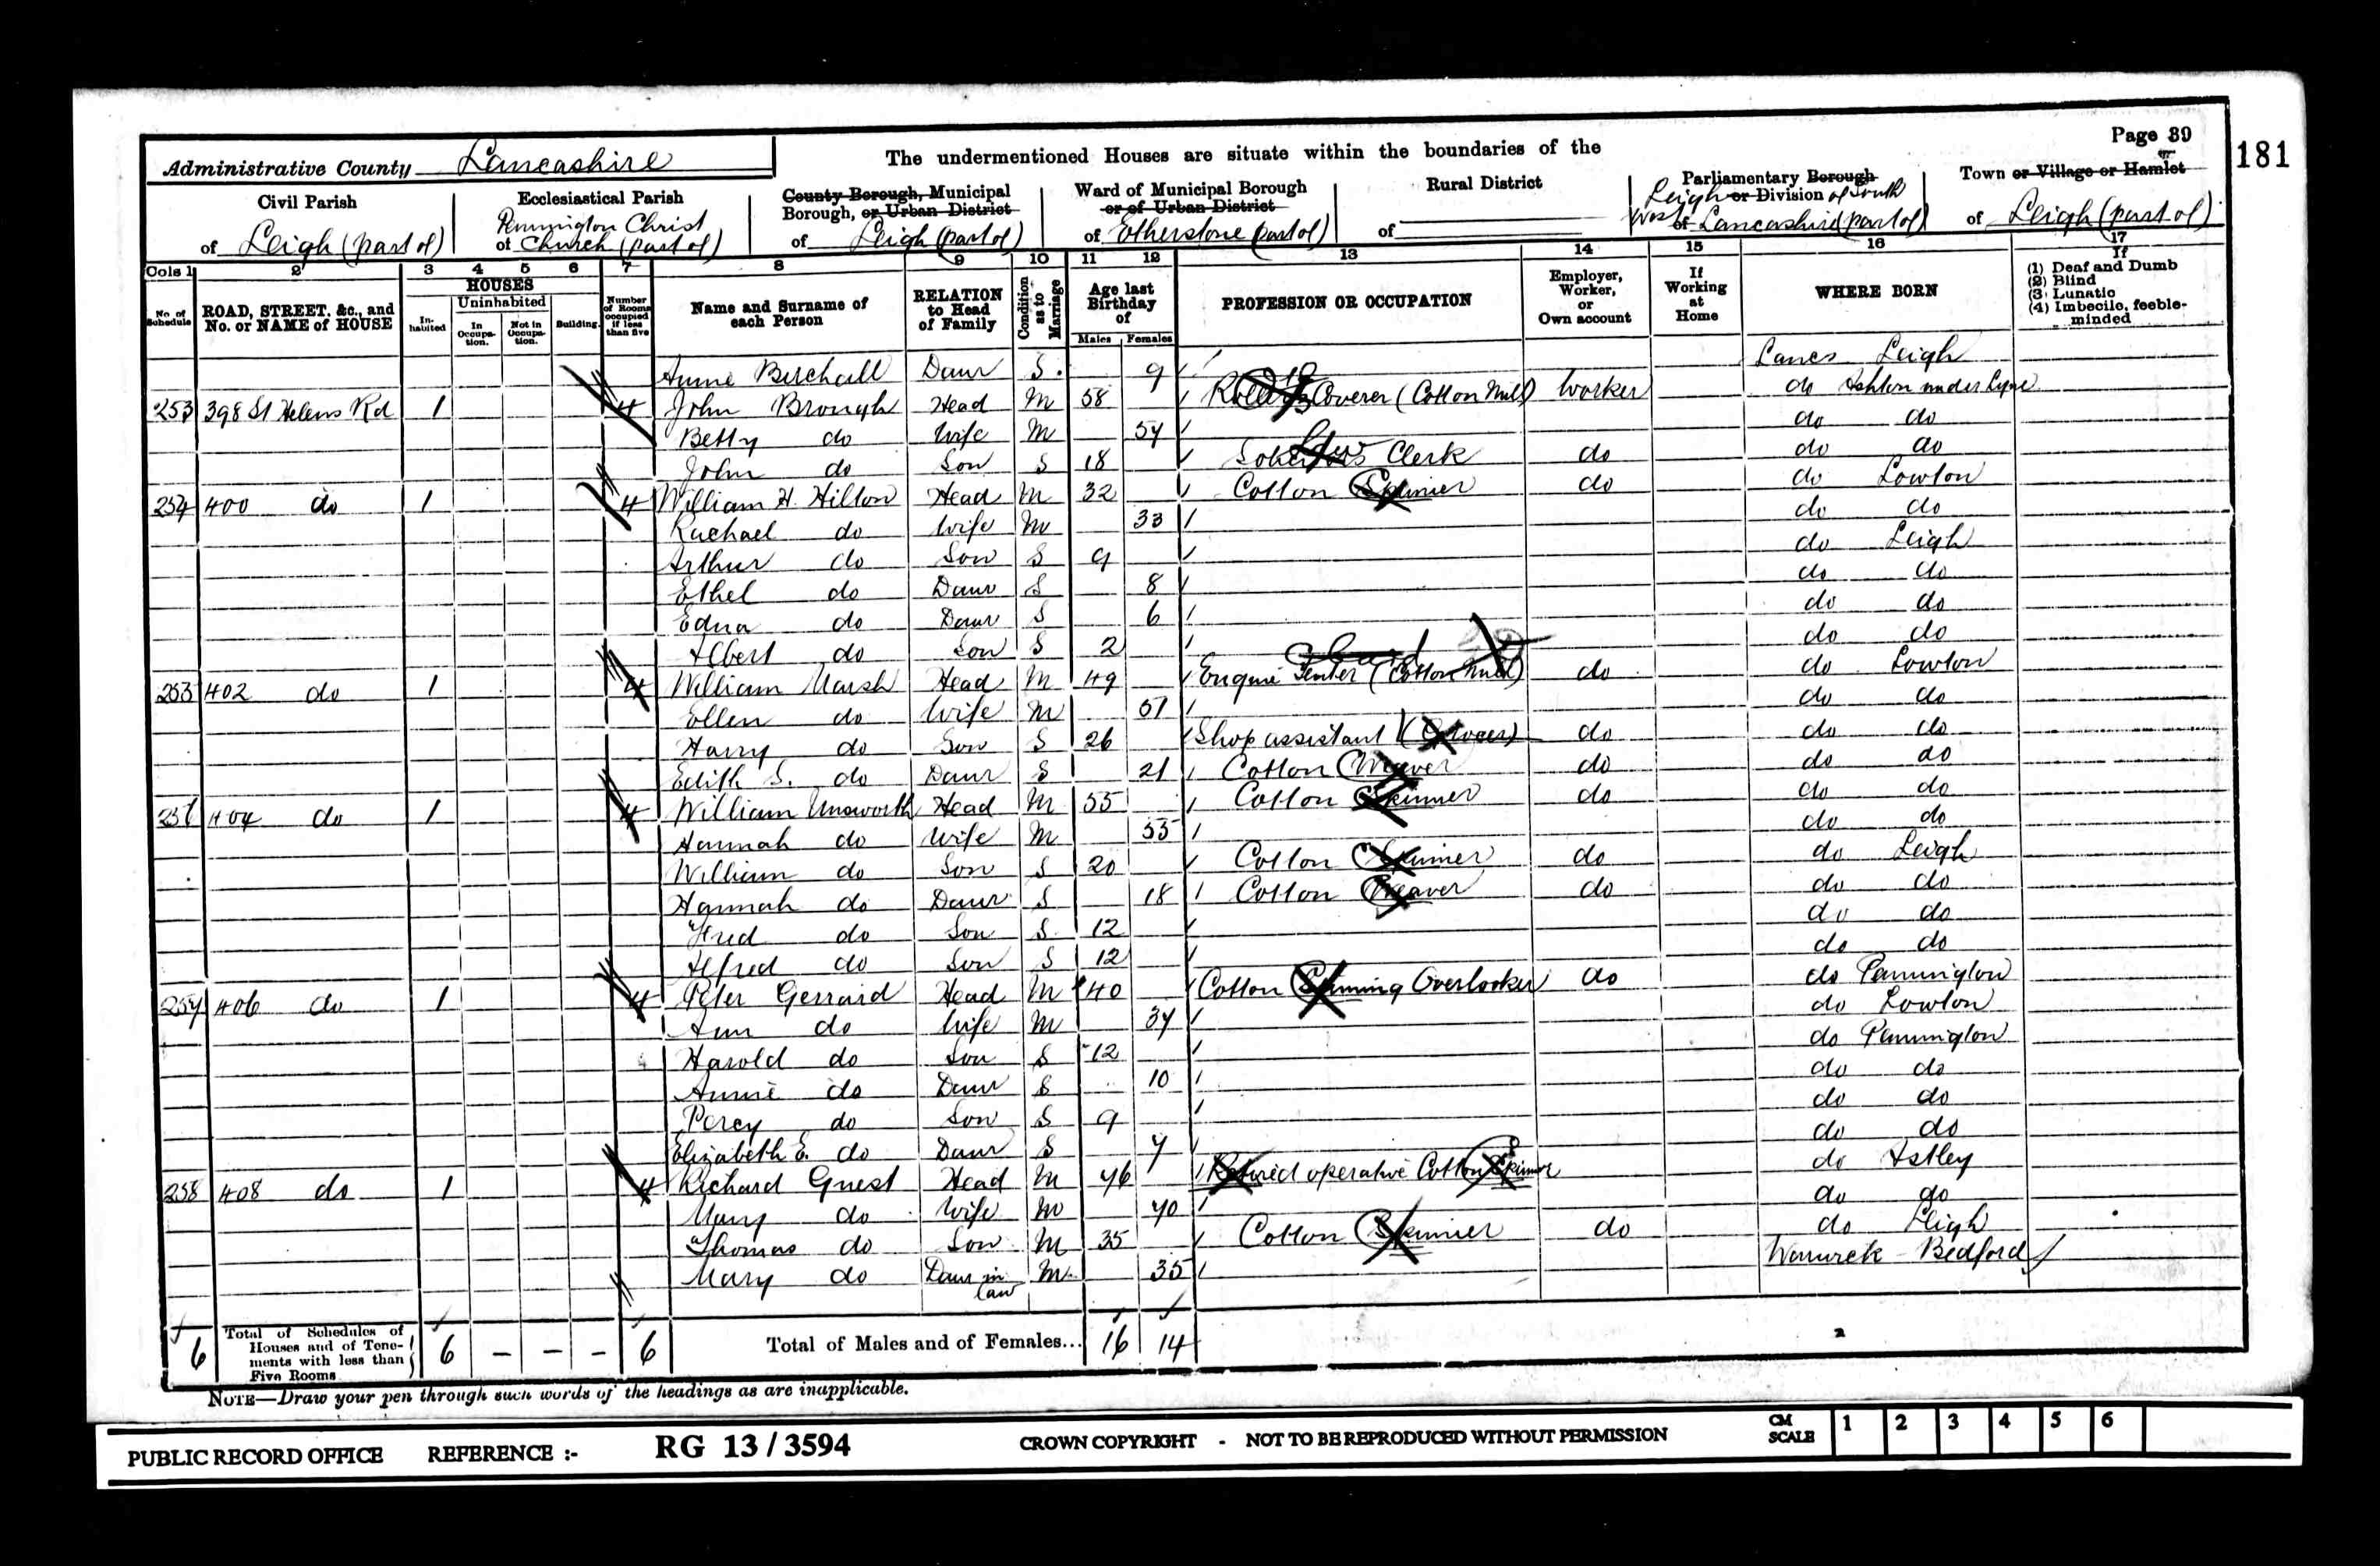 Page 39
181
Administrative County Lancashire
The undermentioned Houses are situate within the boundaries of the
Civil Parish
of Leigh (part of)
Ecclesiastical Parish
Pennington Christ
of Church (part of)
County Borough, Municipal
Borough, or Urban District
of Leigh (part of)
Ward of Municipal Borough
or of Urban District
of Etherstone (part of)
Rural District
of
Parliamentary Borough
Leigh or Division of South
West of Lancashire (part of)
Town or Village or Hamlet
of Leigh (part of)
Cols 1 2 3 4 5 6 7 8 9 10 11 12 13 14 15 16 17
No. of Schedule
ROAD, STREET, &c., and No. or NAME of HOUSE
HOUSES
Inhabited
Uninhabited
In Occupation.
Not in Occupation.
Building.
Number of Rooms occupied if less than five
Name and Surname of each Person
RELATION to Head of Family
Condition as to Marriage
Age last Birthday of
Males Females
PROFESSION OR OCCUPATION
Employer, Worker, or Own account
If Working at Home
WHERE BORN
If
(1) Deaf and Dumb
(2) Blind
(3) Lunatic
(4) Imbecile, feeble-minded
Annie Birchall Daur S. 9 Lancs Leigh
253 398 St Helens Rd 1 4 John Brough Head M 58 Roller Coverer (Cotton Mill) Worker do Ashton under Lyne
Betty do Wife M 54 do do
John do Son S 18 Solicitors Clerk do do do
254 400 do 1 4 William H. Hilton Head M 32 Cotton Spinner do do Lowton
Rachael do Wife M 33 do do
Arthur do Son S 9 do Leigh
Ethel do Daur S 8 do do
Edna do Daur S 6 do do
Albert do Son S 2 do do
253 402 do 1 4 William Marsh Head M 49 Engine Tenter (Cotton Mill) do do Lowton
Ellen do Wife M 51 do do
Harry do Son S 26 Shop assistant (Grocers) do do do
Edith S. do Daur S 21 Cotton Weaver do do do
256 404 do 1 4 William Unsworth Head M 55 Cotton Spinner do do do
Hannah do Wife M 55 do do
William do Son S 20 Cotton Spinner do do Leigh
Hannah do Daur S 18 Cotton Weaver do do do
Fred do Son S 12 do do
Alfred do Son S 12 do do
257 406 do 1 4 Peter Gerrard Head M 40 Cotton Spinning Overlooker do do Pennington
Ann do Wife M 37 do Lowton
Harold do Son S 12 do Pennington
Annie do Daur S 10 do do
Percy do Son S 9 do do
Elizabeth E. do Daur S 7 do do
258 408 do 1 4 Richard Guest Head M 76 Retired operative Cotton Spinner do Astley
Mary do Wife M 70 do do
Thomas do Son M 35 Cotton Spinner do do Leigh
Mary do Daur in law M 35 Warwick Bedford
6 Total of Schedules of Houses and of Tenements with less than Five Rooms 6 – – – 6 Total of Males and of Females... 16 14
NOTE—Draw your pen through such words of the headings as are inapplicable.
PUBLIC RECORD OFFICE REFERENCE :- RG 13/3594 CROWN COPYRIGHT - NOT TO BE REPRODUCED WITHOUT PERMISSION CM SCALE 1 2 3 4 5 6